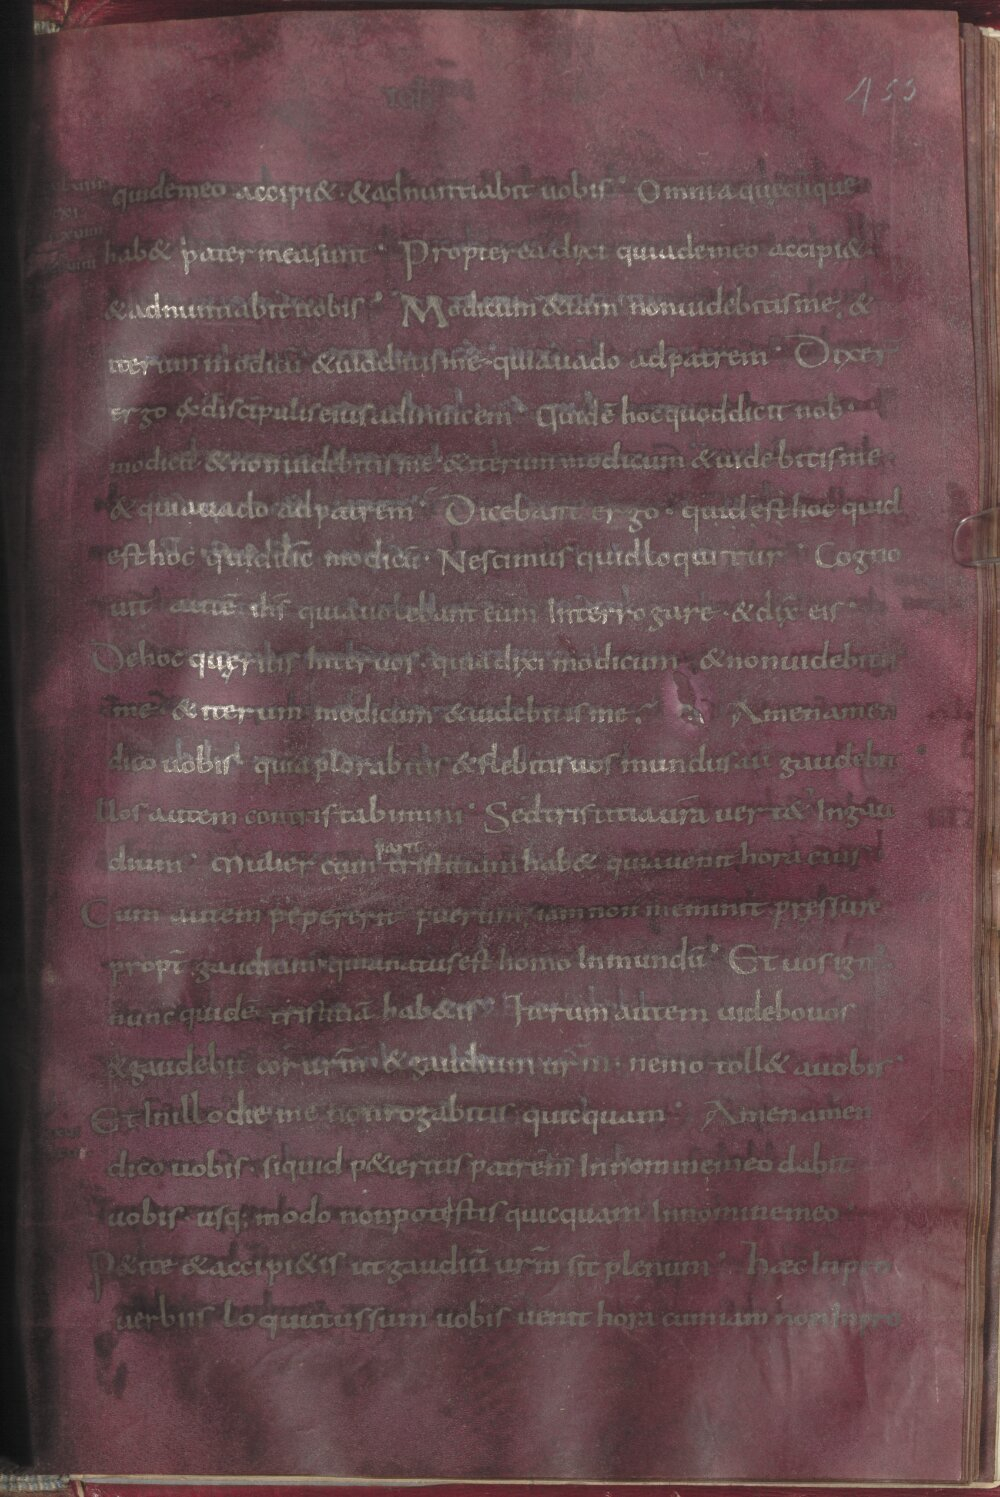 453
quidemeo accipi& · &adnuntiabit uobis · Omnia quęcūque
hab& pater mea sunt · Propterea dixi quia demeo accipi&
&adnuntiabit uobis · Modicum &iam nonuidebitis me, &
iterum modicū &uidebitis me quia uado adpatrem · Dixer̄
ergo &discipulis eius adinuicem · Quidē hoc quod dicit nob ·
modicū &non uidebitis me &iterum modicum &uidebitis me
& quia uado ad patrem · Dicebant ergo · quid est hoc quid
est hoc quid dic̄ modicū · Nescimus quid loquitur · Cogno
uit autē ih̄s quia uolebant eum Interrogare · &dix̄ eis ·
Dehoc quęritis Inter uos · quia dixi modicum &nonuidebitis
me & iterum modicum &uidebitis me · Amen amen
dico uobis quia plorabitis &flebitis uos mundus aū gaudebit
Uos autem contristabimini · Sed tristitia ur̄a uert& Ingau
dium · Mulier cum parit tristitiam hab& quia uenit hora eius
Cum autem pepererit puerum iam non meminit pressurę
propt̄ gaudium quia natus est homo Inmundū · Et uos igr̄
nunc quidē tristitiā hab&is · Iterum autem uidebo uos
&gaudebit cor ur̄m &gaudium ur̄m nemo toll& auobis ·
Et Inillo die me non rogabitis quicquam · Amen amen
dico uobis · siquid p&ieritis patrem In nomine meo dabit
uobis · usq; modo non potęstis quicquam Innomine meo
P&ite &accipi&is ut gaudiū ur̄m sit plenum · Hæc In pro
uerbiis locutus sum uobis uenit hora cum iam non In pro